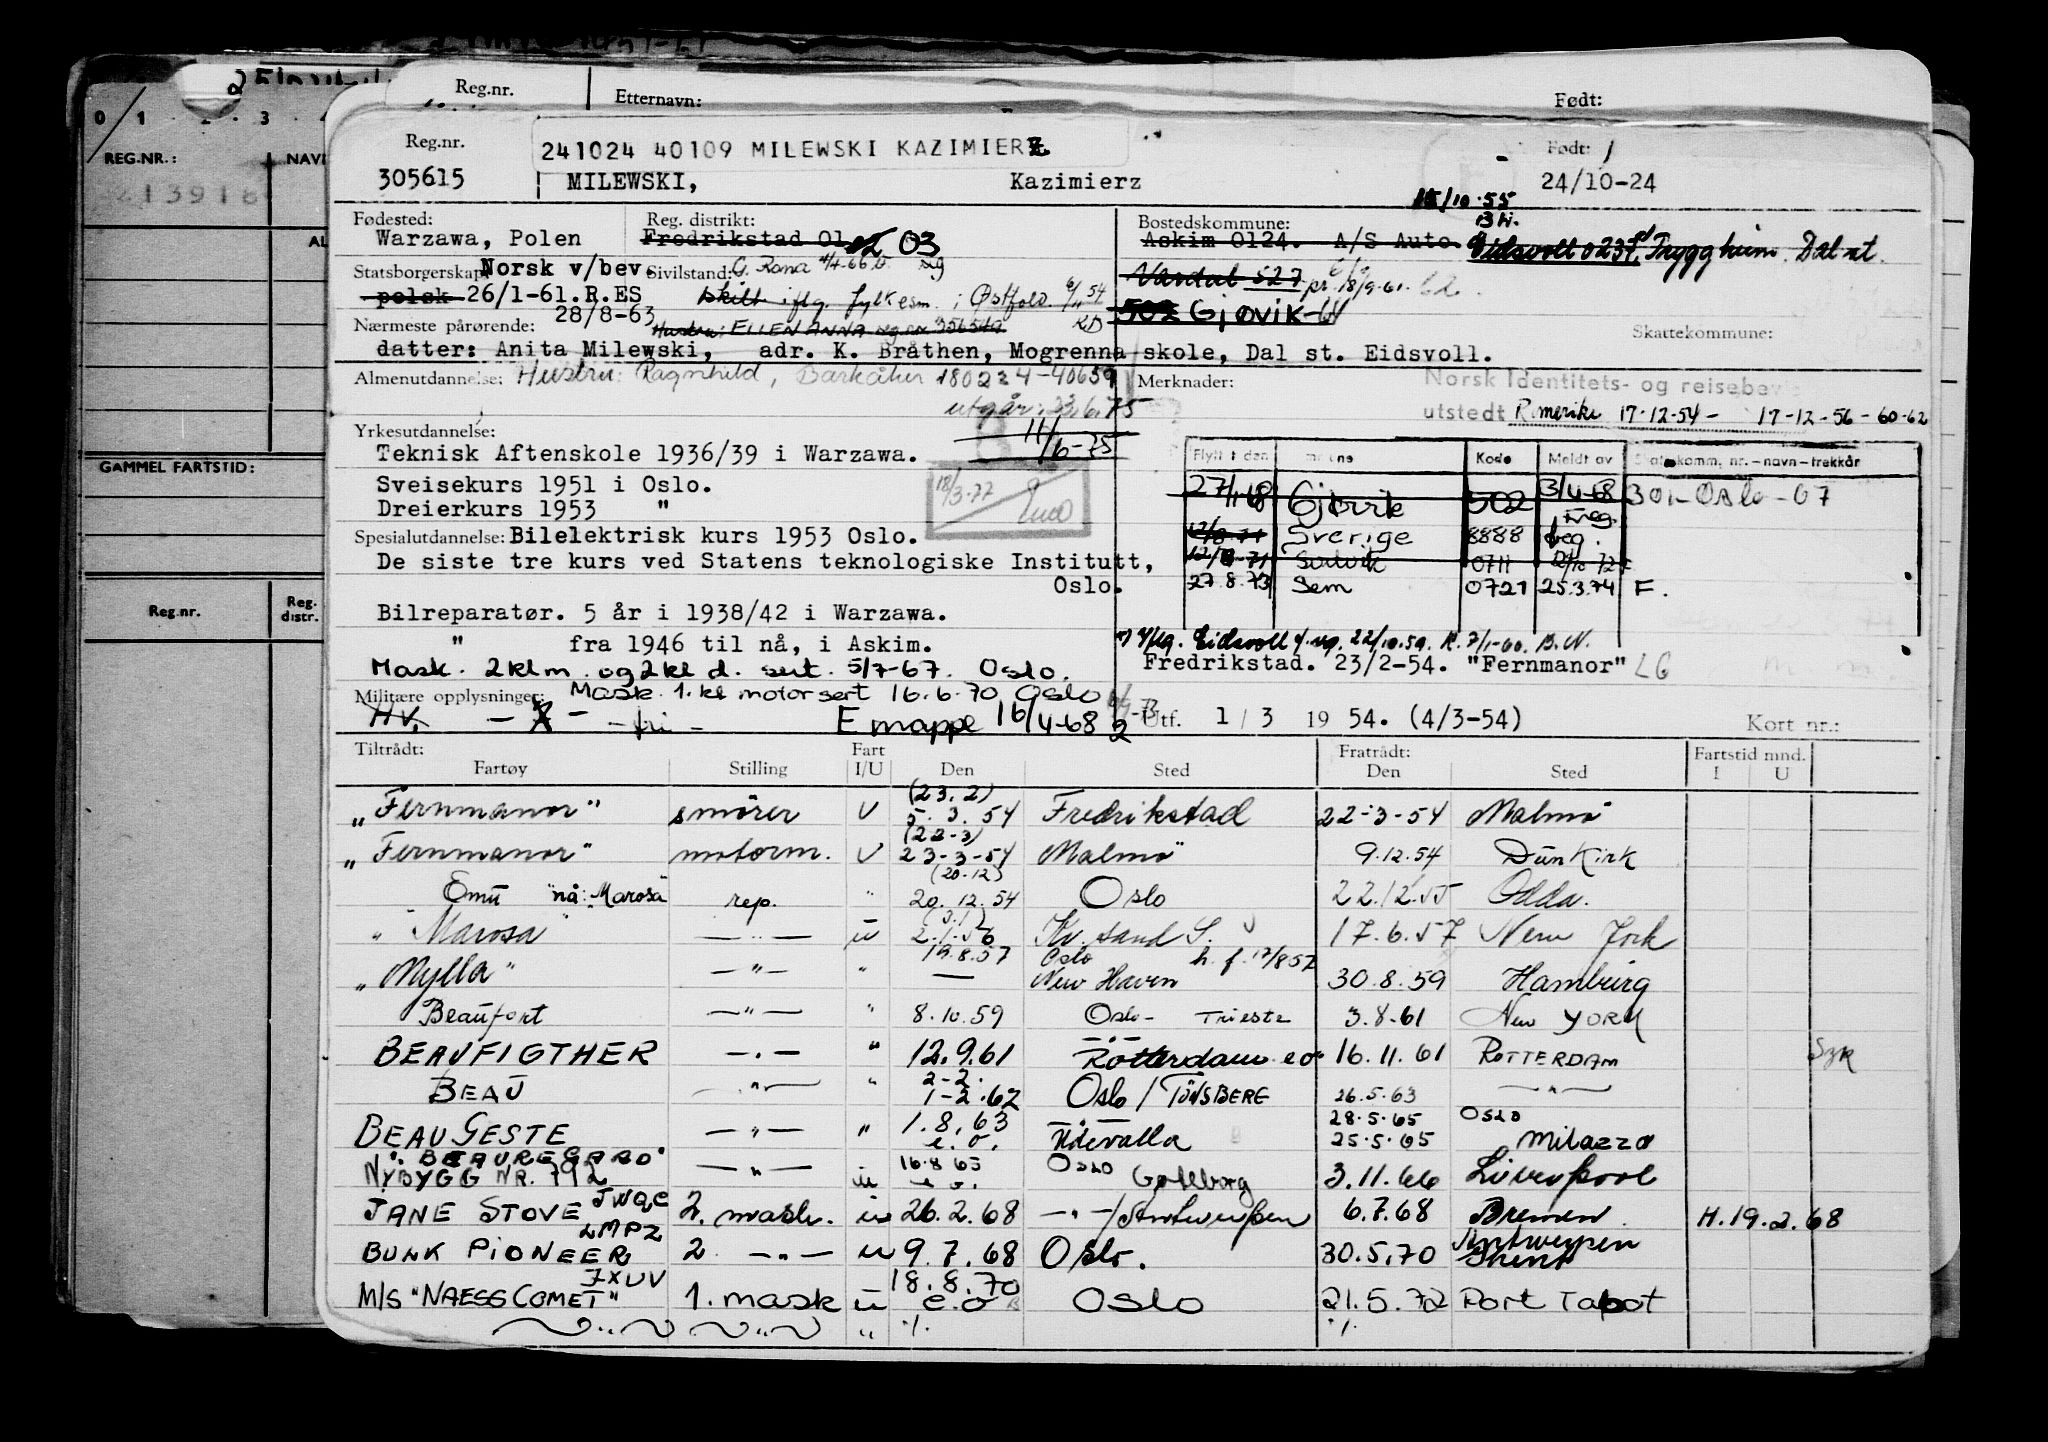 Reg.nr.
Etternavn:
Født:
0 1 2 3
REG.NR.:
213916
GAMMEL FARTSTID:
Reg.nr.
Reg. distr.
Reg.nr.
241024 40109 MILEWSKI KAZIMIERZ
Født:
305615
MILEWSKI,
Kazimierz
24/10-24
15/10.55
Fødested:
Reg. distrikt:
Bostedskommune:
Warzawa, Polen
Fredrikstad 01
02 03
Askim 0124. A/S Auto.
Eidsvoll 0237
Trygg heim. Dal st.
Statsborgerskap:
Norsk v/bev.
Sivilstand:
G.
sig
Vardal 527
pr. 18/9-61.
62
polsk 26/1-61.R.ES
28/8-63
skilt iflg. fylkesm. i Østfold. 6/11 54
KD
502 Gjøvik-61
Nærmeste pårørende:
Hustru: ELLEN ANNA
Skattekommune:
datter: Anita Milewski, adr. K. Bråthen, Mogrenna skole, Dal st. Eidsvoll.
Almenutdannelse:
Hustru: Ragnhild, Barkåker 180224-40659
utgår: 23.6.75
Merknader:
Norsk Identitets- og reisebevis
utstedt Romerike 17-12-54 - 17-12-56-60-62
Yrkesutdannelse:
11/6-75
Teknisk Aftenskole 1936/39 i Warzawa.
Sveisekurs 1951 i Oslo.
18/3-77
Dreierkurs 1953 "
Flytt t den
Kode
Meldt av
Skattekomm. nr.-navn-trekkår
27/1-68 Gjøvik 502 3/4-68 301-Oslo-07
12/8-71 Sverige 8888 freg.
12/8-71 0711
27.8.73 Sem 0721 25.3.74 F.
Spesialutdannelse:
Bilelektrisk kurs 1953 Oslo.
De siste tre kurs ved Statens teknologiske Institutt,
Oslo.
Bilreparatør. 5 år i 1938/42 i Warzawa.
" fra 1946 til nå, i Askim.
Eidsvoll f.reg. 22/10.59. K. 7/1-60. B.N.
Fredrikstad. 23/2-54. "Fernmanor" LG
Mask. 2 kl m. og 2 kl d. sert. 5/7-67. Oslo.
Militære opplysninger:
Mask. 1. kl motor sert 16.6.70 Oslo
HV. - - fri -
E mappe 16/4-68
2
Utf. 1 / 3 19 54. (4/3-54)
Kort nr.:
Tiltrådt:
Fart
Fratrådt:
Fartstid mnd.
Fartøy
Stilling
I/U
Den
Sted
Den
Sted
I
U
"Fernmanor" smører U (23.2) 5.3.54 Fredrikstad 22-3-54 Malmö
"Fernmanor" motorm. U (22-3) 23-3-54 Malmö 9.12.54 Dunkirk
Emu "nå: Marosa" rep. " (20-12) 20.12.54 Oslo 22.12.55 Odda.
" Marosa " — " — u (3.1) 2.1.56 Kr.sand S. 17.6.57 New York
"Mylla" — " — " 19.8.57 Oslo h.f. 17/8 57 New Haven 30.8.59 Hamburg
Beaufort — " — " 8.10.59 Oslo - TRIESTE 3.8.61 New YORK
BEAUFIGTHER — " — " 12.9.61 Rotterdam e.o. 16.11.61 ROTTERDAM
BEAU — " — " 2-2. 1-2.62 Oslo / TØNSBERG 26.5.63 — " —
BEAU GESTE — " — " 1.8.63 e.o. Uddevalla 28.5.65 OSLO 25.5.65 Milazzo
"BEAUREGARD" NYBYGG NR. 792 — " — u 16.8 65 e.o. Oslo Gøteborg 3.11.66 Liverpool
JANE STOVE JWQC 2. mask. u 26.2.68 — " — / Antwerpen 6.7.68 Bremen. H.19.2.68
BULK PIONEER LMPZ 2. — " — u 9.7.68 Oslo. 30.5.70 Antwerpen
M/S "NAESS COMET" JXUV 1. mask u 18.8.70 e.o Oslo 21.5.72 Port Tabot
" " " ./. ./.